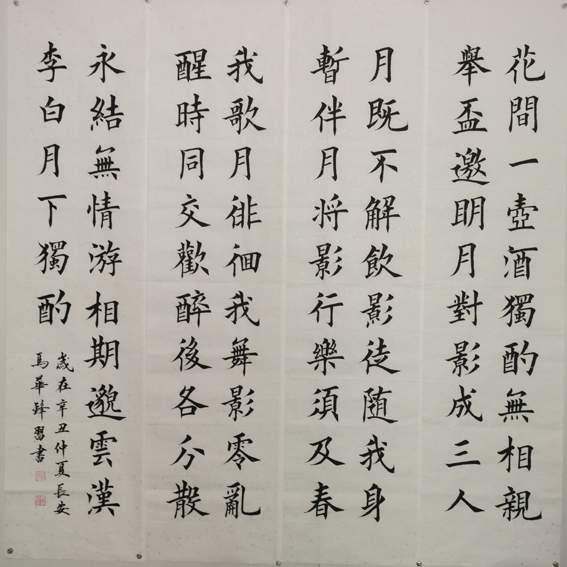 花間一壺酒獨酌無相親
舉盃邀明月對影成三人
月既不解飲影徒随我身
暫伴月将影行樂須及春
我歌月徘徊我舞影零亂
醒時同交歡醉後各分散
永結無情游相期邈雲漢
李白月下獨酌
歲在辛丑仲夏長安
馬華鋒習書